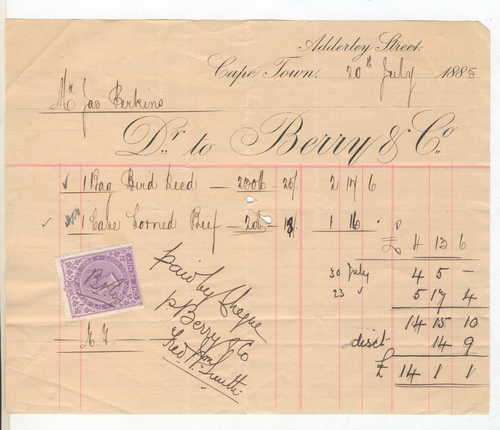 Adderley Street
Cape Town. 20th July 1885
Mr Jas Perkins
Dr. to Berry & Co.
1 Bag Bird Seed — 220 lb 25/ 2 17 6
1 Case Corned Beef — 2 dz 18/ 1 16 -
£ 4 13 6
30 July 4 5 -
23 " 5 17 4
14 15 10
disct 14 9
£ 14 1 1
Paid by Cheque
p Berry & Co
Geo. Smith